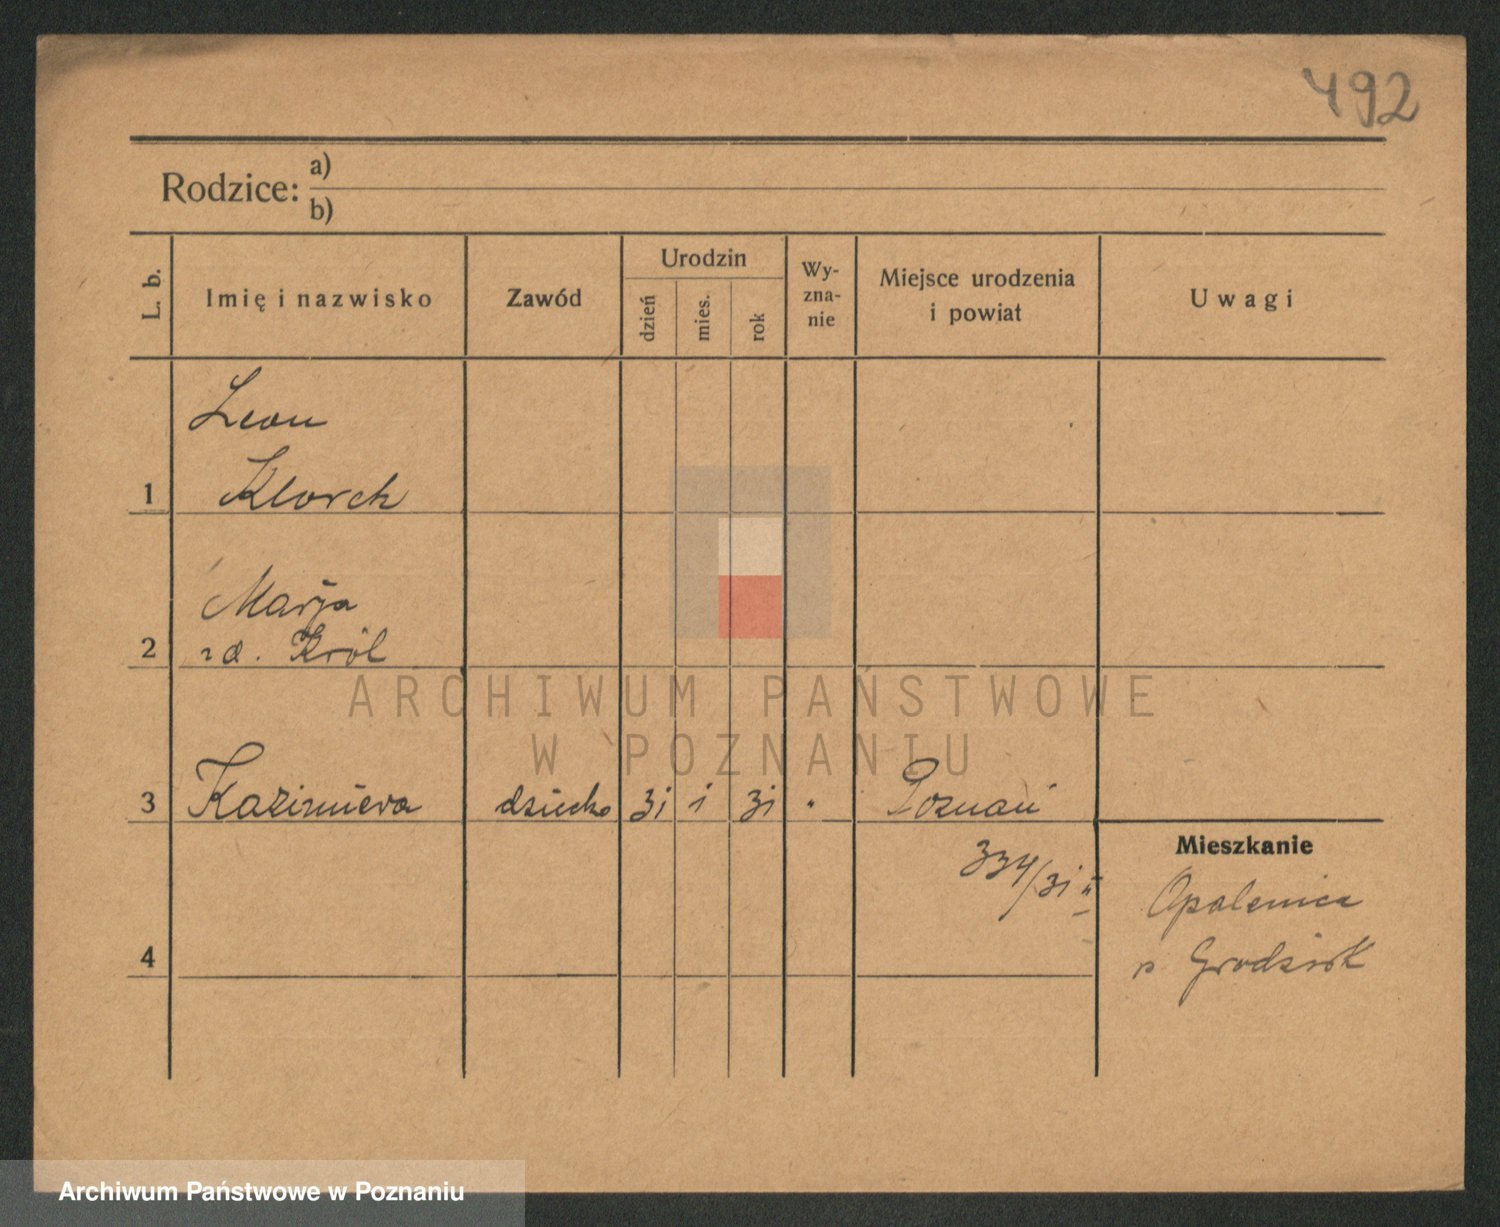 492
Rodzice: a)
b)
L. b.
Imię i nazwisko
Zawód
Urodzin
dzień
mies.
rok
Wy-
zna-
nie
Miejsce urodzenia
i powiat
Uwagi
Leon
1 Klorek
Marja
2 zd. Król
ARCHIWUM PAŃSTWOWE
W POZNANIU
3 Kazimiera dziecko 31 1 31 " Poznań
334/31 II
Mieszkanie
Opalenica
p Grodzisk
4
Archiwum Państwowe w Poznaniu